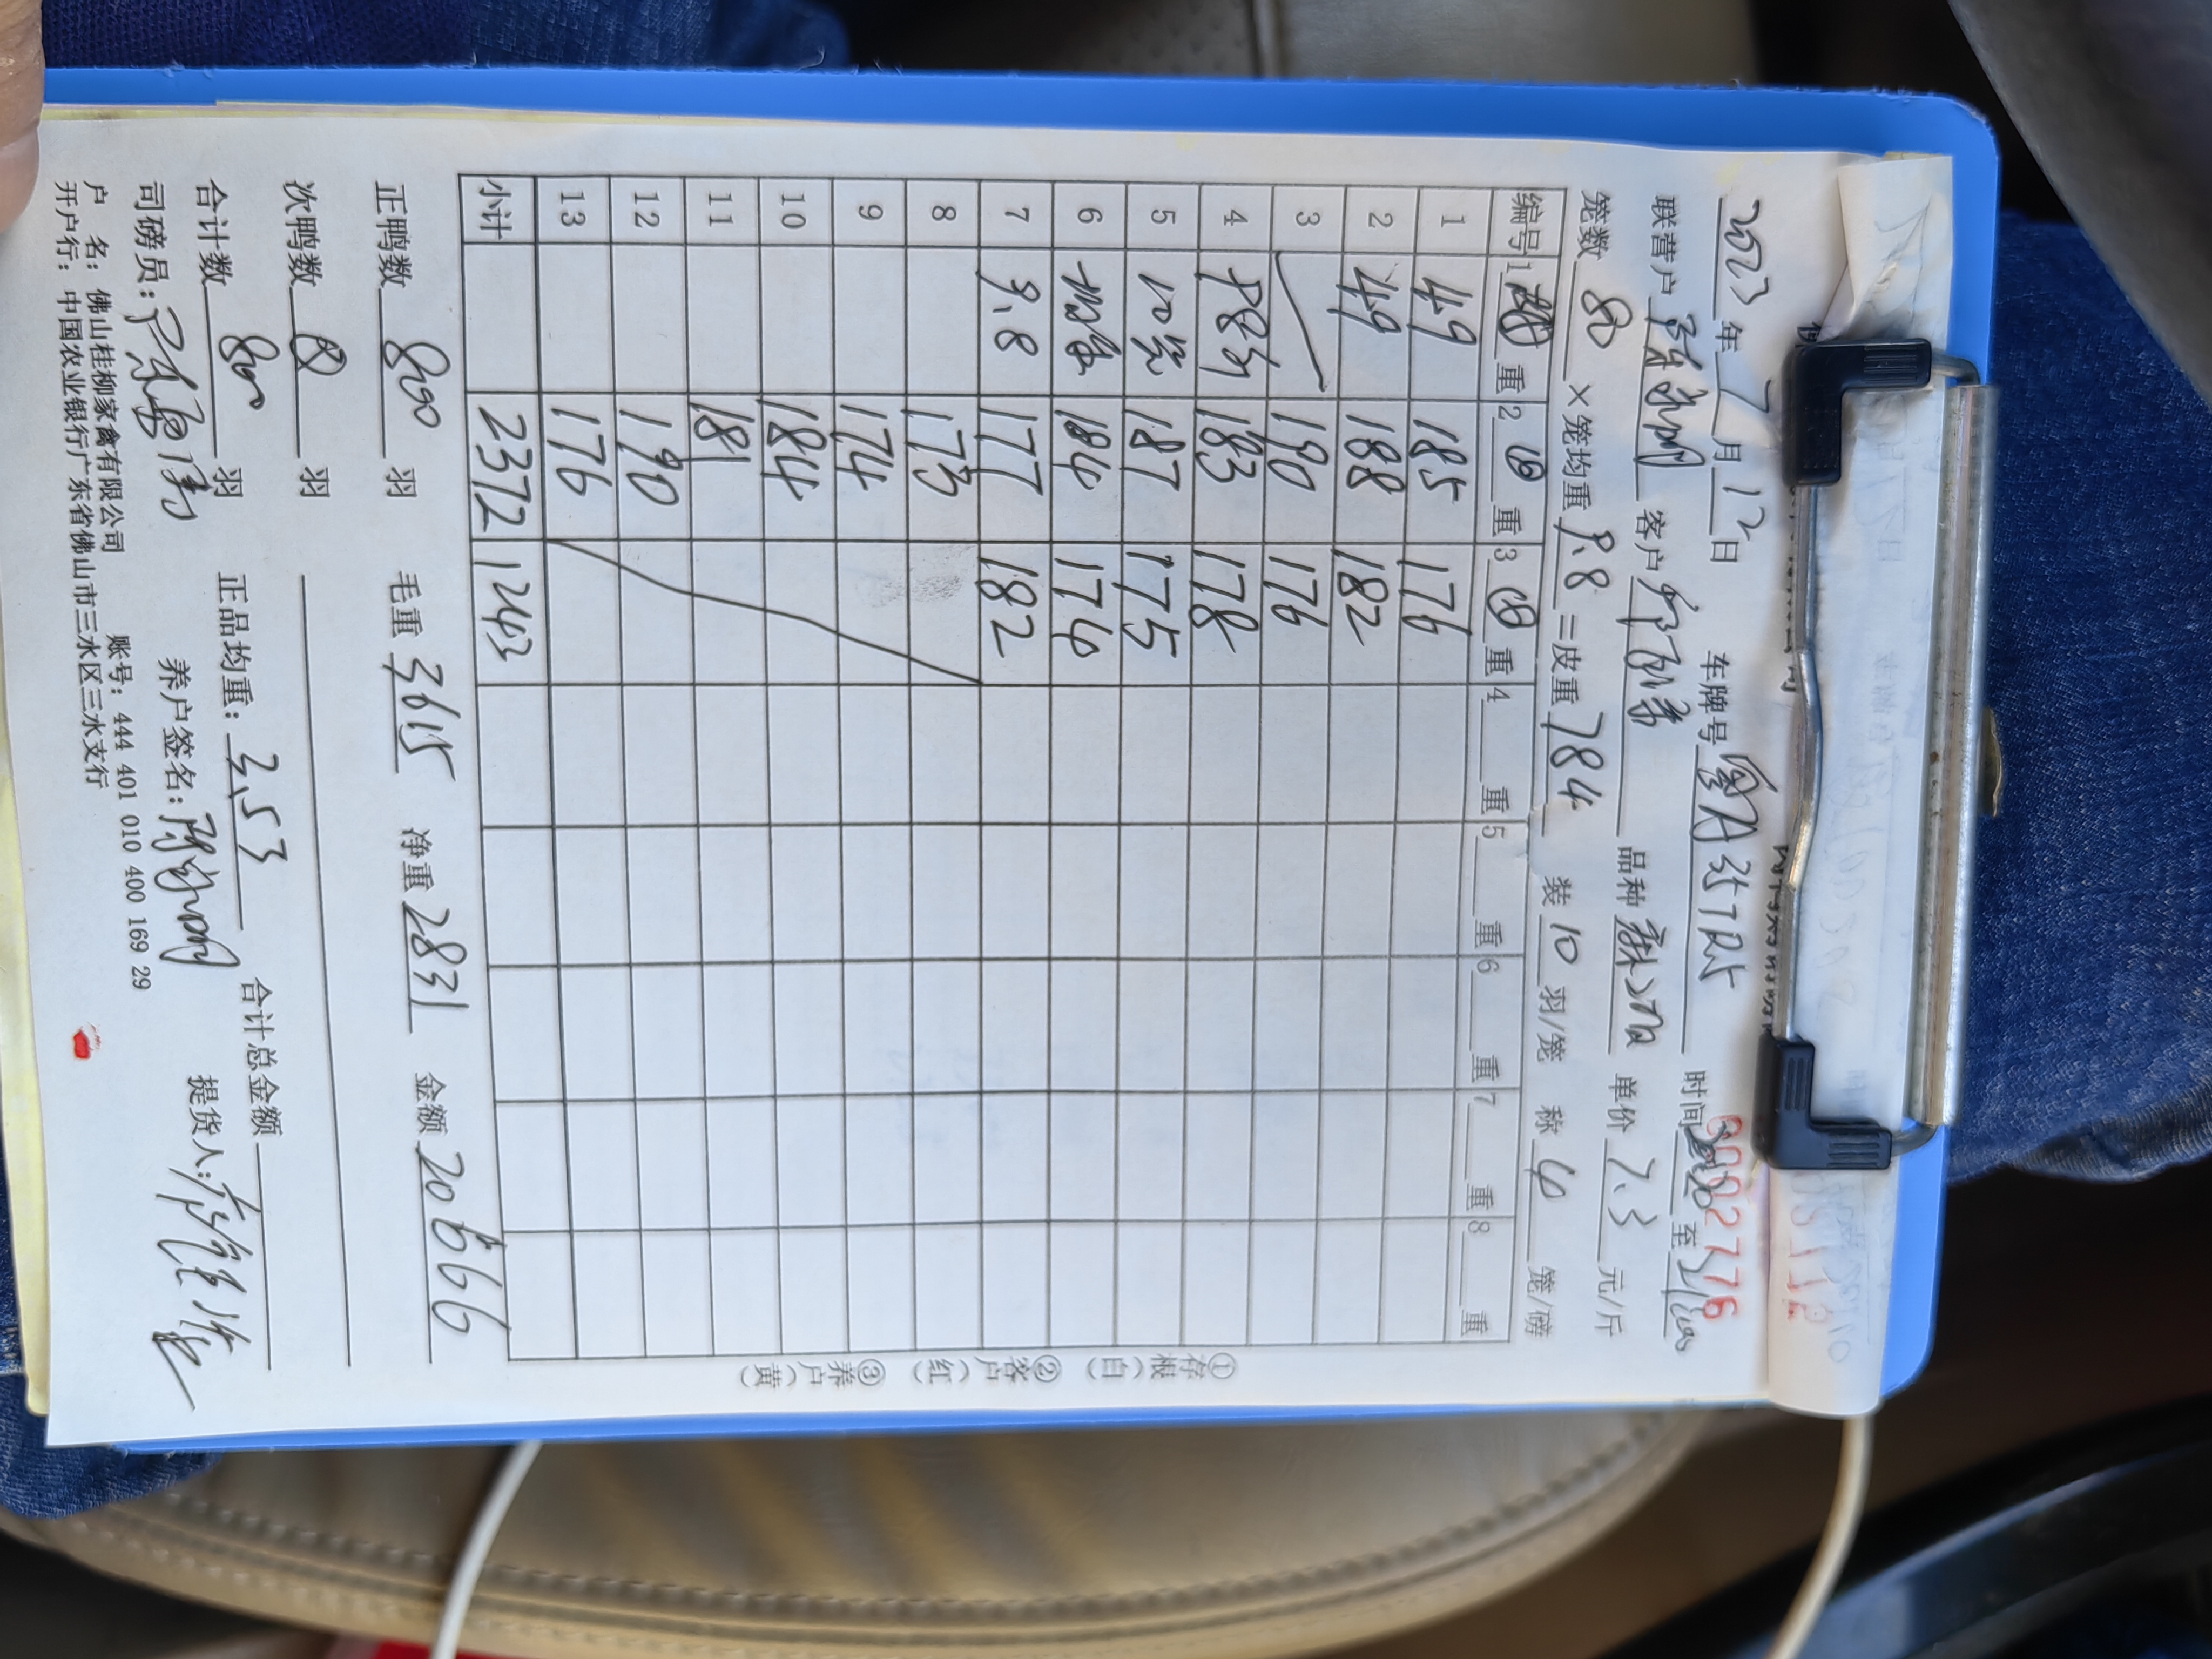 2023年7月12日
8002776
联营户 客户 车牌号 时间 至
笼数 80 ×笼均重 9.8 =皮重 784 品种 单价 7.3 元/斤
装 10 羽/笼 称 4 笼/磅
编号 1 重 2 重 3 重 4 重 5 重 6 重 7 重 8 重
1 49 185 176
2 49 188 182
3 190 176
4 183 178
5 187 175
6 184 174
7 9.8 177 182
8 173
9 174
10 184
11 181
12 190
13 176
小计 2372 1243
①存根(白) ②客户(红) ③养户(黄)
正鸭数 800 羽 毛重 3615 净重 2831 金额 20666
次鸭数 0 羽
合计数 800 羽 正品均重: 3.53 合计总金额
司磅员: 养户签名: 提货人:
户 名: 佛山桂柳家禽有限公司 账号: 444 401 010 400 169 29
开户行: 中国农业银行广东省佛山市三水区三水支行